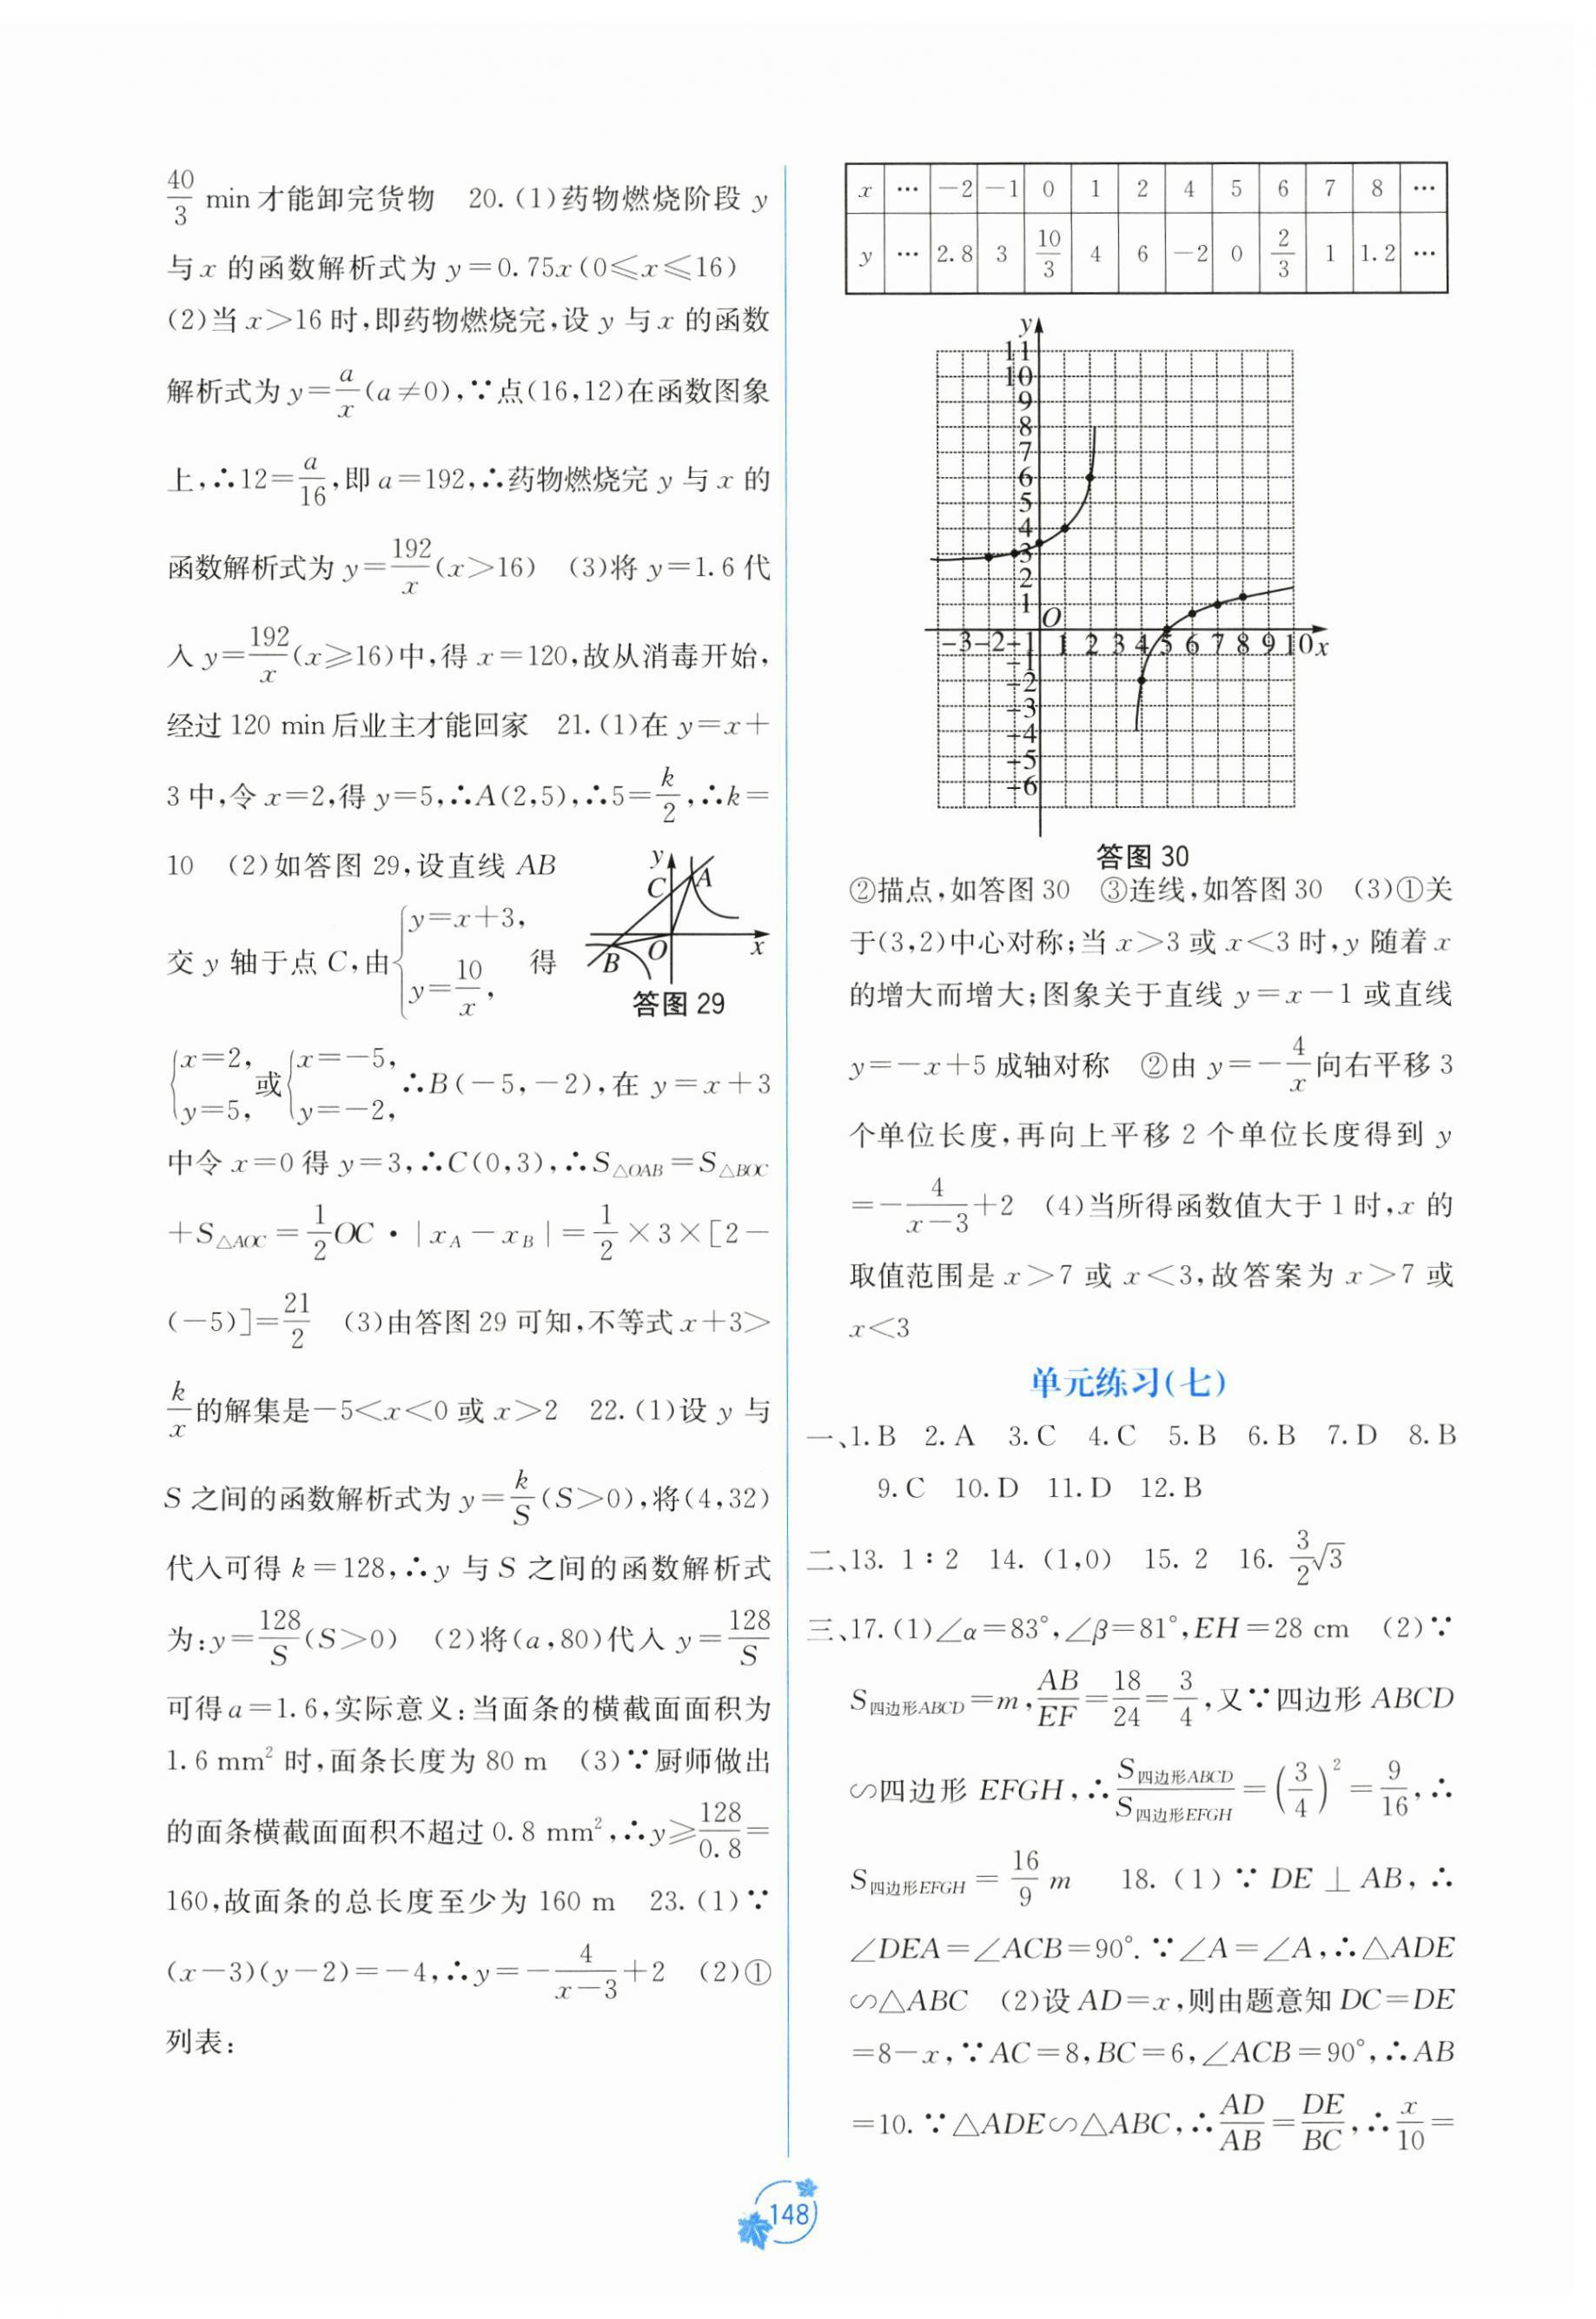 40/3 min才能卸完货物　20.(1)药物燃烧阶段 y
与x 的函数解析式为 y=0.75x(0⩽x⩽16)
(2)当 x>16时,即药物燃烧完,设 y 与x 的函数
解析式为y=a/x(a≠0),∵点(16,12)在函数图象
上,∴12=a/16,即a=192,∴药物燃烧完 y 与 x 的
函数解析式为 y=192/x(x>16)　(3)将 y=1.6代
入 y=192/x(x⩾16)中,得 x=120,故从消毒开始,
经过120 min后业主才能回家　21.(1)在 y=x+
3中,令 x=2,得 y=5,∴A(2,5),∴5=k/2,∴k=
10　(2)如答图29,设直线 AB
交 y 轴于点 C,由{y=x+3, y=10/x, 得
y
C
A
O
x
B
答图29
{x=2, y=5, 或{x=-5, y=-2, ∴B(-5,-2),在 y=x+3
中令 x=0得 y=3,∴C(0,3),∴S△OAB=S△BOC
+S△AOC=1/2OC·|xA-xB|=1/2×3×[2-
(-5)]=21/2　(3)由答图29可知,不等式x+3>
k/x的解集是-5<x<0或 x>2　22.(1)设 y 与
S 之间的函数解析式为 y=k/S(S>0),将(4,32)
代入可得 k=128,∴y 与 S 之间的函数解析式
为:y=128/S(S>0)　(2)将(a,80)代入 y=128/S
可得a=1.6,实际意义:当面条的横截面面积为
1.6 mm² 时,面条长度为 80 m　(3)∵厨师做出
的面条横截面面积不超过0.8 mm²,∴y⩾128/0.8=
160,故面条的总长度至少为 160 m　23.(1)∵
(x-3)(y-2)=-4,∴y=-4/(x-3)+2　(2)①
列表:
x … -2 -1 0 1 2 4 5 6 7 8 …
y … 2.8 3 10/3 4 6 -2 0 2/3 1 1.2 …
y
11
10
9
8
7
6
5
4
3
2
1
O
-3 -2 -1 1 2 3 4 5 6 7 8 9 10 x
-1
-2
-3
-4
-5
-6
答图30
②描点,如答图30　③连线,如答图30　(3)①关
于(3,2)中心对称;当 x>3或 x<3时,y 随着 x
的增大而增大;图象关于直线 y=x-1或直线
y=-x+5成轴对称　②由 y=-4/x向右平移3
个单位长度,再向上平移 2 个单位长度得到 y
=-4/(x-3)+2　(4)当所得函数值大于1时,x 的
取值范围是 x>7 或 x<3,故答案为 x>7 或
x<3
单元练习(七)
一、1.B　2.A　3.C　4.C　5.B　6.B　7.D　8.B
9.C　10.D　11.D　12.B
二、13. 1∶2　14. (1,0)　15. 2　16. 3/2√3
三、17.(1)∠α=83°,∠β=81°,EH=28 cm　(2)∵
S四边形ABCD=m,AB/EF=18/24=3/4,又∵四边形 ABCD
∽四边形 EFGH,∴S四边形ABCD/S四边形EFGH=(3/4)²=9/16,∴
S四边形EFGH=16/9 m　18.(1)∵ DE⊥AB,∴
∠DEA=∠ACB=90°.∵∠A=∠A,∴△ADE
∽△ABC　(2)设 AD=x,则由题意知 DC=DE
=8-x,∵AC=8,BC=6,∠ACB=90°,∴AB
=10.∵△ADE∽△ABC,∴AD/AB=DE/BC,∴x/10=
148